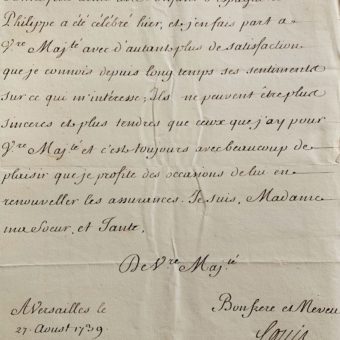 Philippe a été célébré hier, et j'en fais part a
Vre Majté avec d'autant plus de satisfaction
que je connois depuis long temps ses sentiments
sur ce qui m'interesse; Ils ne peuvent être plus
sinceres et plus tendres que ceux que j'ay pour
Vre Majté et c'est toujours avec beaucoup de
plaisir que je profite des occasions de lui en
renouveller les assurances. Je suis, Madame
ma Soeur, et Tante,
De Vre Majté
A Versailles le
27. Aoust 1739.
Bon frere et Neveu
Louis